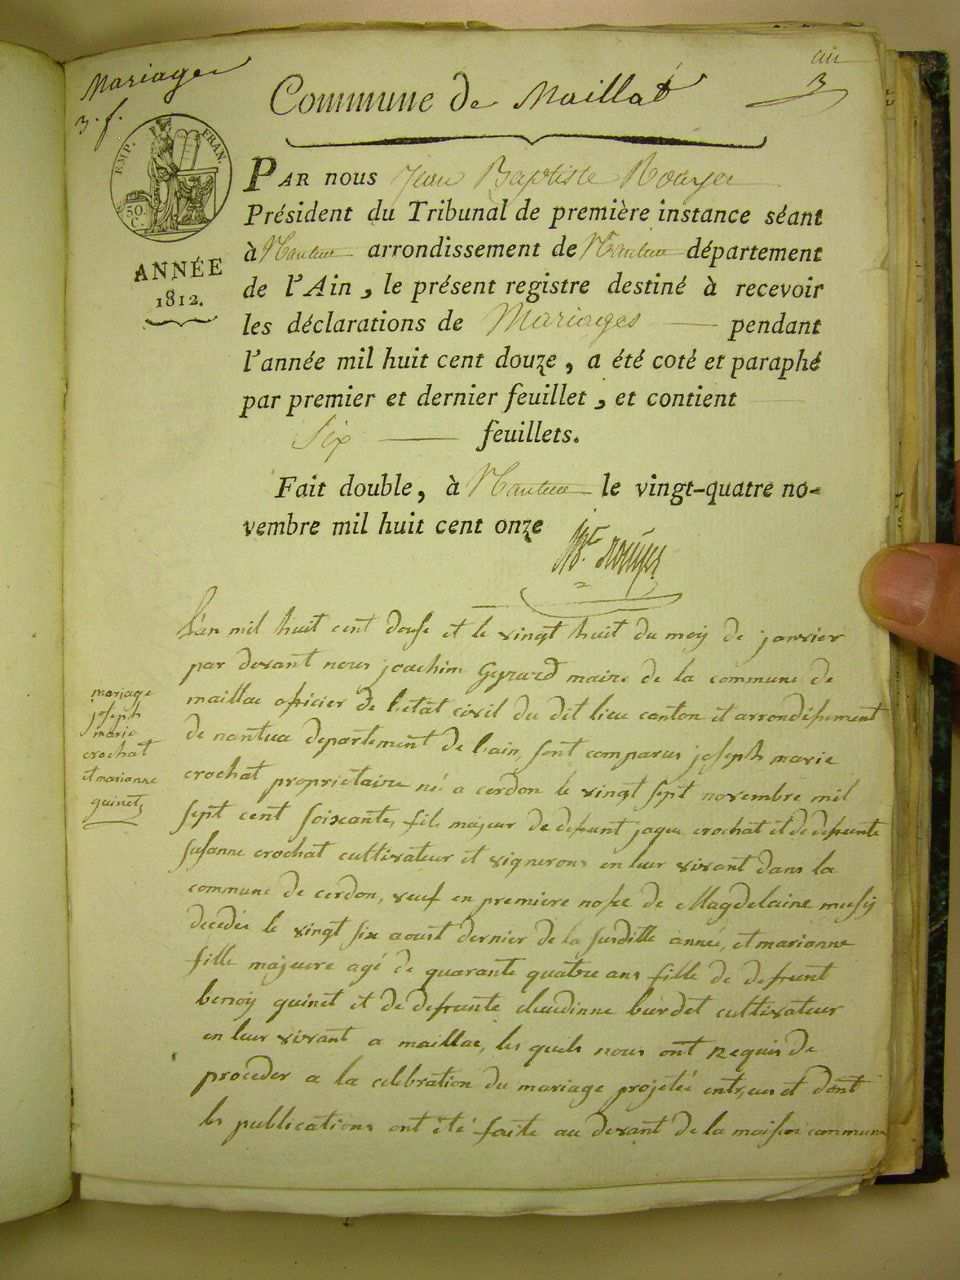 Mariages
3. f.
Commune de Maillat
3
EMP. FRAN.
50. C.
ANNÉE
1812.
PAR nous Jean Baptiste Rouyer
Président du Tribunal de première instance séant
à Nantua arrondissement de Nantua département
de l'Ain, le présent registre destiné à recevoir
les déclarations de Mariages pendant
l'année mil huit cent douze, a été coté et paraphé
par premier et dernier feuillet, et contient
Six feuillets.
Fait double, à Nantua le vingt-quatre no-
vembre mil huit cent onze
Bte rouyer
L'an mil huit cent douse et le vingt huit du moy de janvier
par devant nous joachim Gyrard maire de la commune de
maillac oficier de l'etat civil du dit lieu canton et arrondissement
de nantua departement de l'ain, sont comparus joseph marie
crochat proprietaire né a cerdon le vingt sept novembre mil
sept cent soixante, fils majeur de defeunt jaque crochat et de defeunte
susanne crochat cultivateur et vignerons en leur vivant dans la
commune de cerdon, veuf en premiere nosse de Magdelaine
decedée le vingt six aoust dernier de la susditte année, et marianne
fille majeure agé de quarante quatre ans fille de defeunt
benoy quinet et de defeunte claudinne burdet cultivateur
en leur vivant a maillac, les quels nous ont requis de
proceder a la celebration du mariage projetée entr,eux et dont
les publications ont été faite au devant de la maison commune
mariage
joseph
marie
crochat
et marianne
quinet